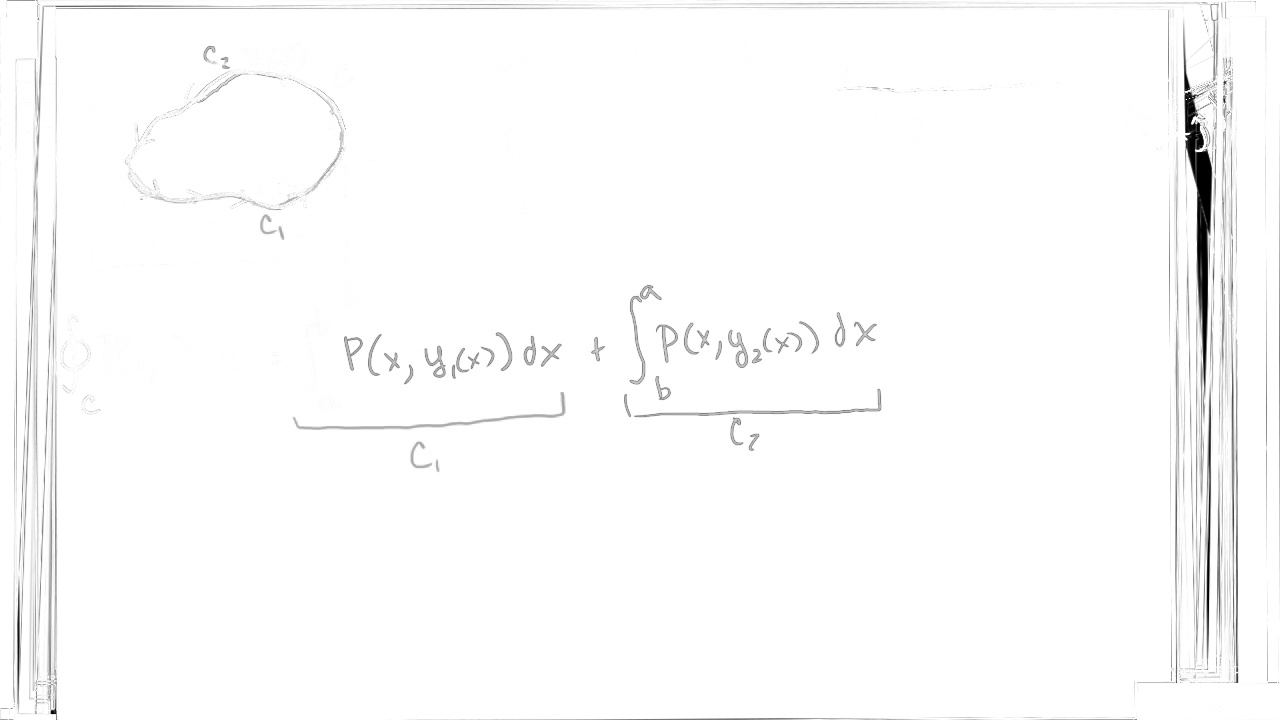 C₂
C₁
P(x, y₁(x)) dx + ∫_b^a P(x, y₂(x)) dx
C₁ C₂